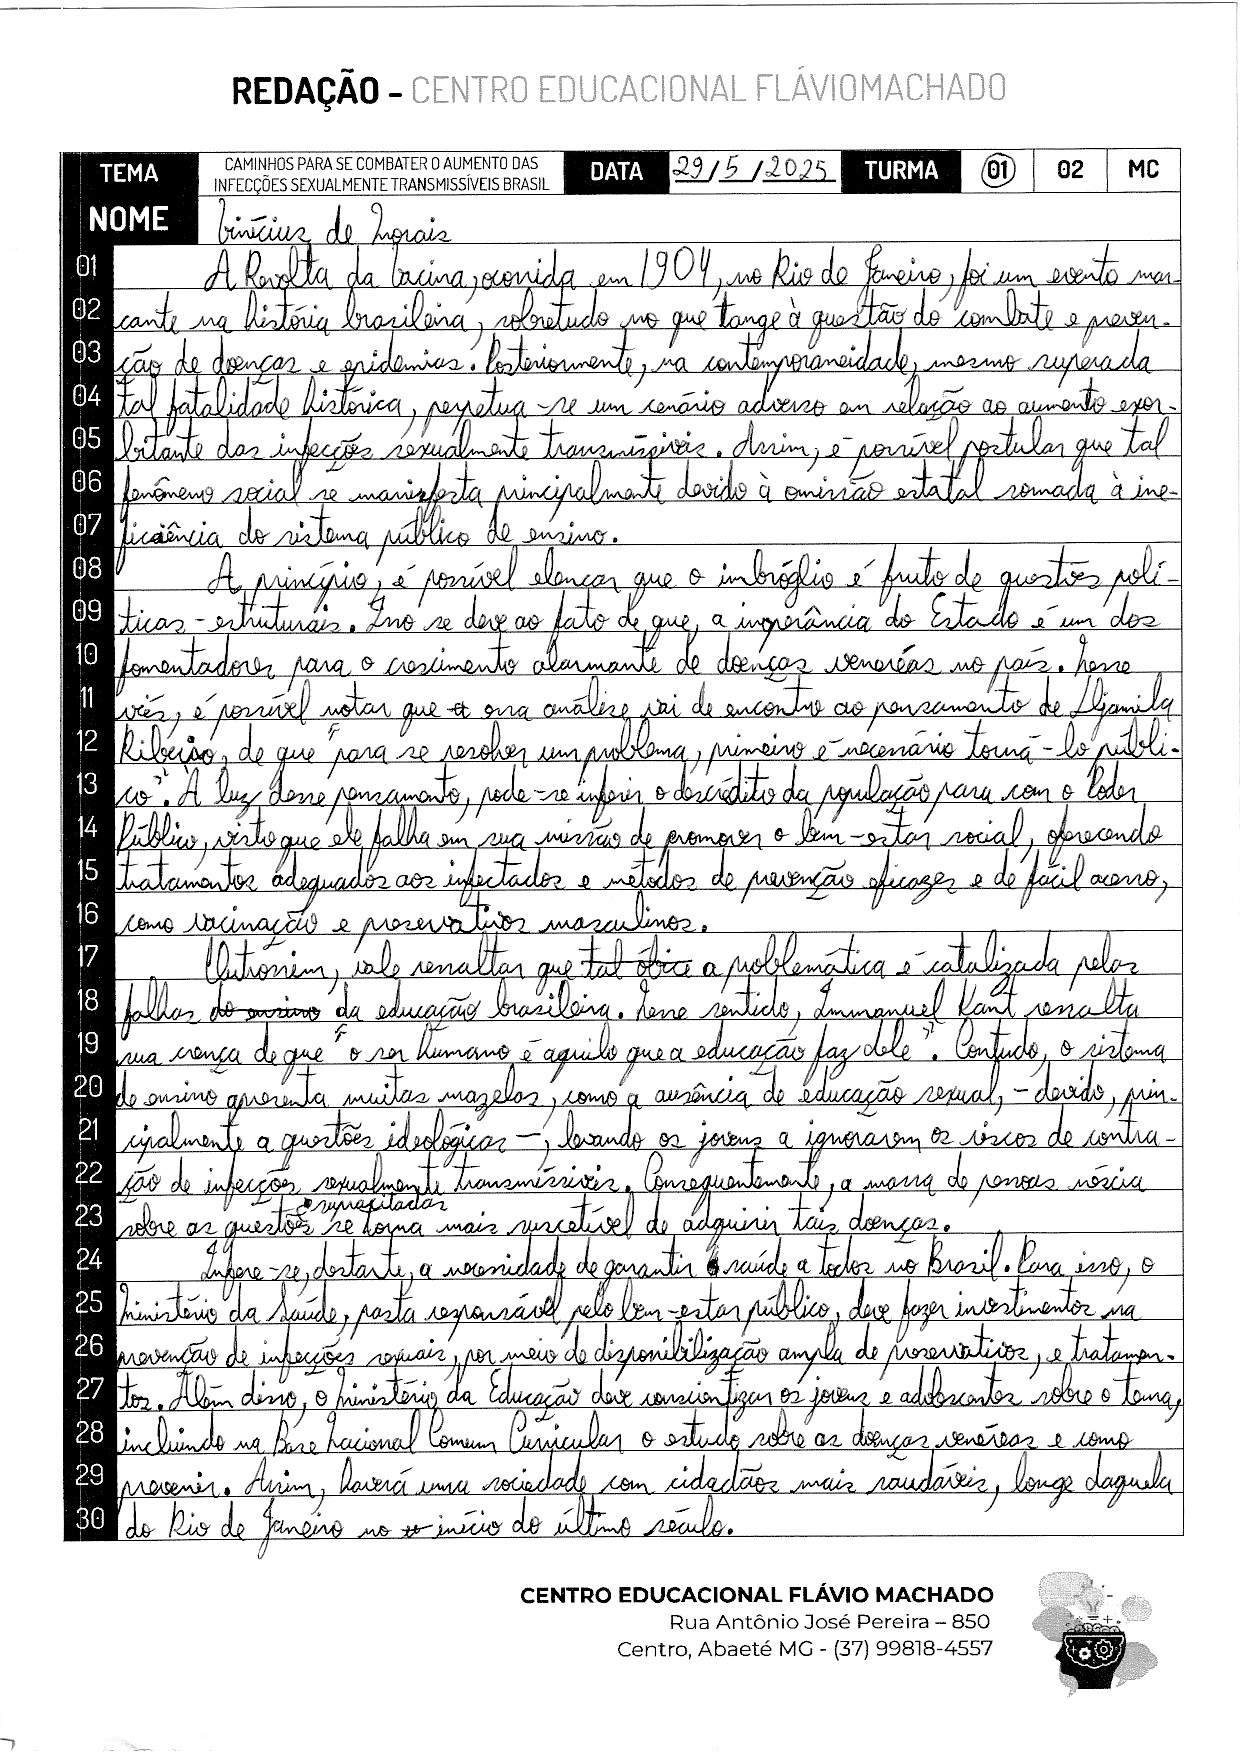 REDAÇÃO - CENTRO EDUCACIONAL FLÁVIOMACHADO
TEMA
CAMINHOS PARA SE COMBATER O AUMENTO DAS
INFECÇÕES SEXUALMENTE TRANSMISSÍVEIS BRASIL
DATA 29/5/2025 TURMA 01 02 MC
NOME Vinícius de Morais
01 A Revolta da Vacina, ocorrida em 1904, no Rio de Janeiro, foi um evento mar-
02 cante na história brasileira, sobretudo no que tange à questão do combate e preven-
03 ção de doenças e epidemias. Posteriormente, na contemporaneidade, mesmo superada
04 tal fatalidade histórica, perpetua-se um cenário adverso em relação ao aumento exor-
05 bitante das infecções sexualmente transmissíveis. Assim, é possível postular que tal
06 fenômeno social se manifesta principalmente devido à omissão estatal somada à ine-
07 ficiência do sistema público de ensino.
08 A princípio, é possível elencar que o imbróglio é fruto de questões polí-
09 ticas-estruturais. Isso se deve ao fato de que, a inoperância do Estado é um dos
10 fomentadores para o crescimento alarmante de doenças venereás no país. Nesse
11 viés, é possível notar que essa análise vai de encontro ao pensamento de Djamila
12 Ribeiro, de que "para se resolver um problema, primeiro é necessário torná-lo públi-
13 co". À luz desse pensamento, pode-se inferir o descrédito da população para com o Poder
14 Público, visto que ele falha em sua missão de promover o bem-estar social, oferecendo
15 tratamentos adequados aos infectados e métodos de prevenção eficazes e de fácil acesso,
16 como vacinação e preservativos masculinos.
17 Outrossim, vale ressaltar que tal óbice a problemática é catalizada pelas
18 falhas do ensino da educação brasileira. Nesse sentido, Immanuel Kant ressalta
19 sua crença de que "o ser humano é aquilo que a educação faz dele". Contudo, o sistema
20 de ensino apresenta muitas mazelas, como a ausência de educação sexual, - devido, prin-
21 cipalmente a questões ideológicas -, levando os jovens a ignorarem os riscos de contra-
22 ção de infecções sexualmente transmíssiveis. Consequentemente, a massa de pessoas néscia
supracitadas
23 sobre as questões se torna mais suscetível de adquirir tais doenças.
24 Infere-se, destarte, a necessidade de garantir saúde a todos no Brasil. Para isso, o
25 Ministério da Saúde, pasta responsável pelo bem-estar público, deve fazer investimentos na
26 prevenção de infecções sexuais, por meio de disponibilização ampla de preservativos, e tratamen-
27 tos. Além disso, o Ministério da Educação deve conscientizar os jovens e adolescentes sobre o tema,
28 incluindo na Base Nacional Comum Curricular o estudo sobre as doenças venéreas e como
29 prevenir. Assim, haverá uma sociedade com cidadãos mais saudáveis, longe daquela
30 do Rio de Janeiro no início do último século.
CENTRO EDUCACIONAL FLÁVIO MACHADO
Rua Antônio José Pereira – 850
Centro, Abaeté MG - (37) 99818-4557